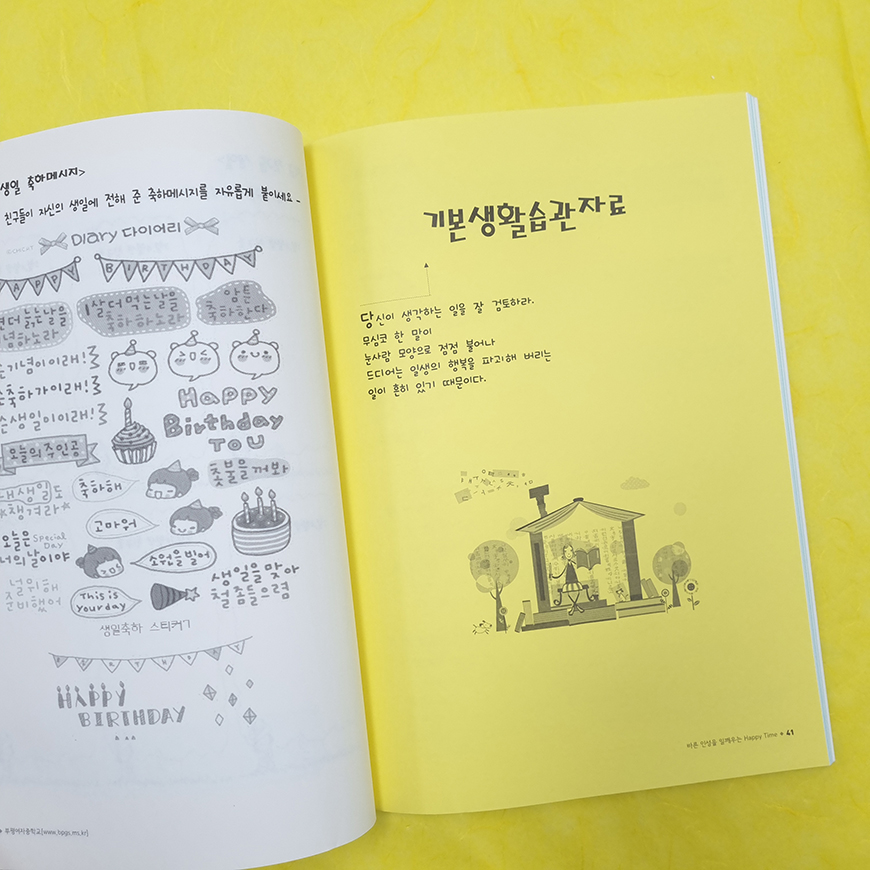 생일 축하메시지>
친구들이 자신의 생일에 전해 준 축하메시지를 자유롭게 붙이세요
Diary 다이어리
HAPPY BIRTHDAY
늙는날을
념하노라
1살더 먹는날을
축하 하노라
암튼
축하한다
기념이이래!
축하가이래!
생일이이래!
Happy
Birthday
TO U
오늘의 주인공
촛불을 꺼봐
내 생일도
챙겨라
축하해
고마워
오늘은 Special Day
너의날이야
소원을 빌어
널 위해
준비했어
This is
your day
생일을 맞아
철 좀 들으렴
생일축하 스티커
BIRTHDAY
HAPPY
BIRTHDAY
부평여자중학교
기본생활습관자료
당신이 생각하는 일을 잘 검토하라.
무심코 한 말이
눈사람 모양으로 점점 불어나
드디어는 일생의 행복을 파괴해 버리는
일이 흔히 있기 때문이다.
바른 인성을 일깨우는 Happy Time 41